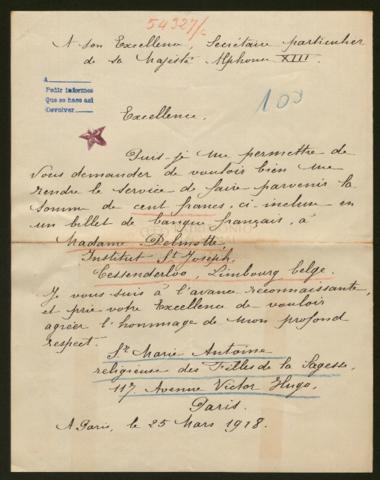 54327/-
A Son Excellence, Secrétaire particulier
de sa Majesté Alphonse XIII.
A
Pedir informes
Que se hace así
Devolver
103
Excellence.
Puis-je me permettre de
Vous demander de vouloir bien me
rendre le service de faire parvenir la
somme de cent francs, ci-incluse en
un billet de banque français, à
Madame Delmotte
Institut St Joseph,
Tessenderloo, Limbourg belge.
Je vous suis à l'avance reconnaissante,
et prie votre Excellence de vouloir
agréer l'hommage de mon profond
respect.
Sr Marie Antoine
religieuse des Filles de la Sagesse
117 Avenue Victor Hugo,
Paris.
A Paris, le 25 Mars 1918.